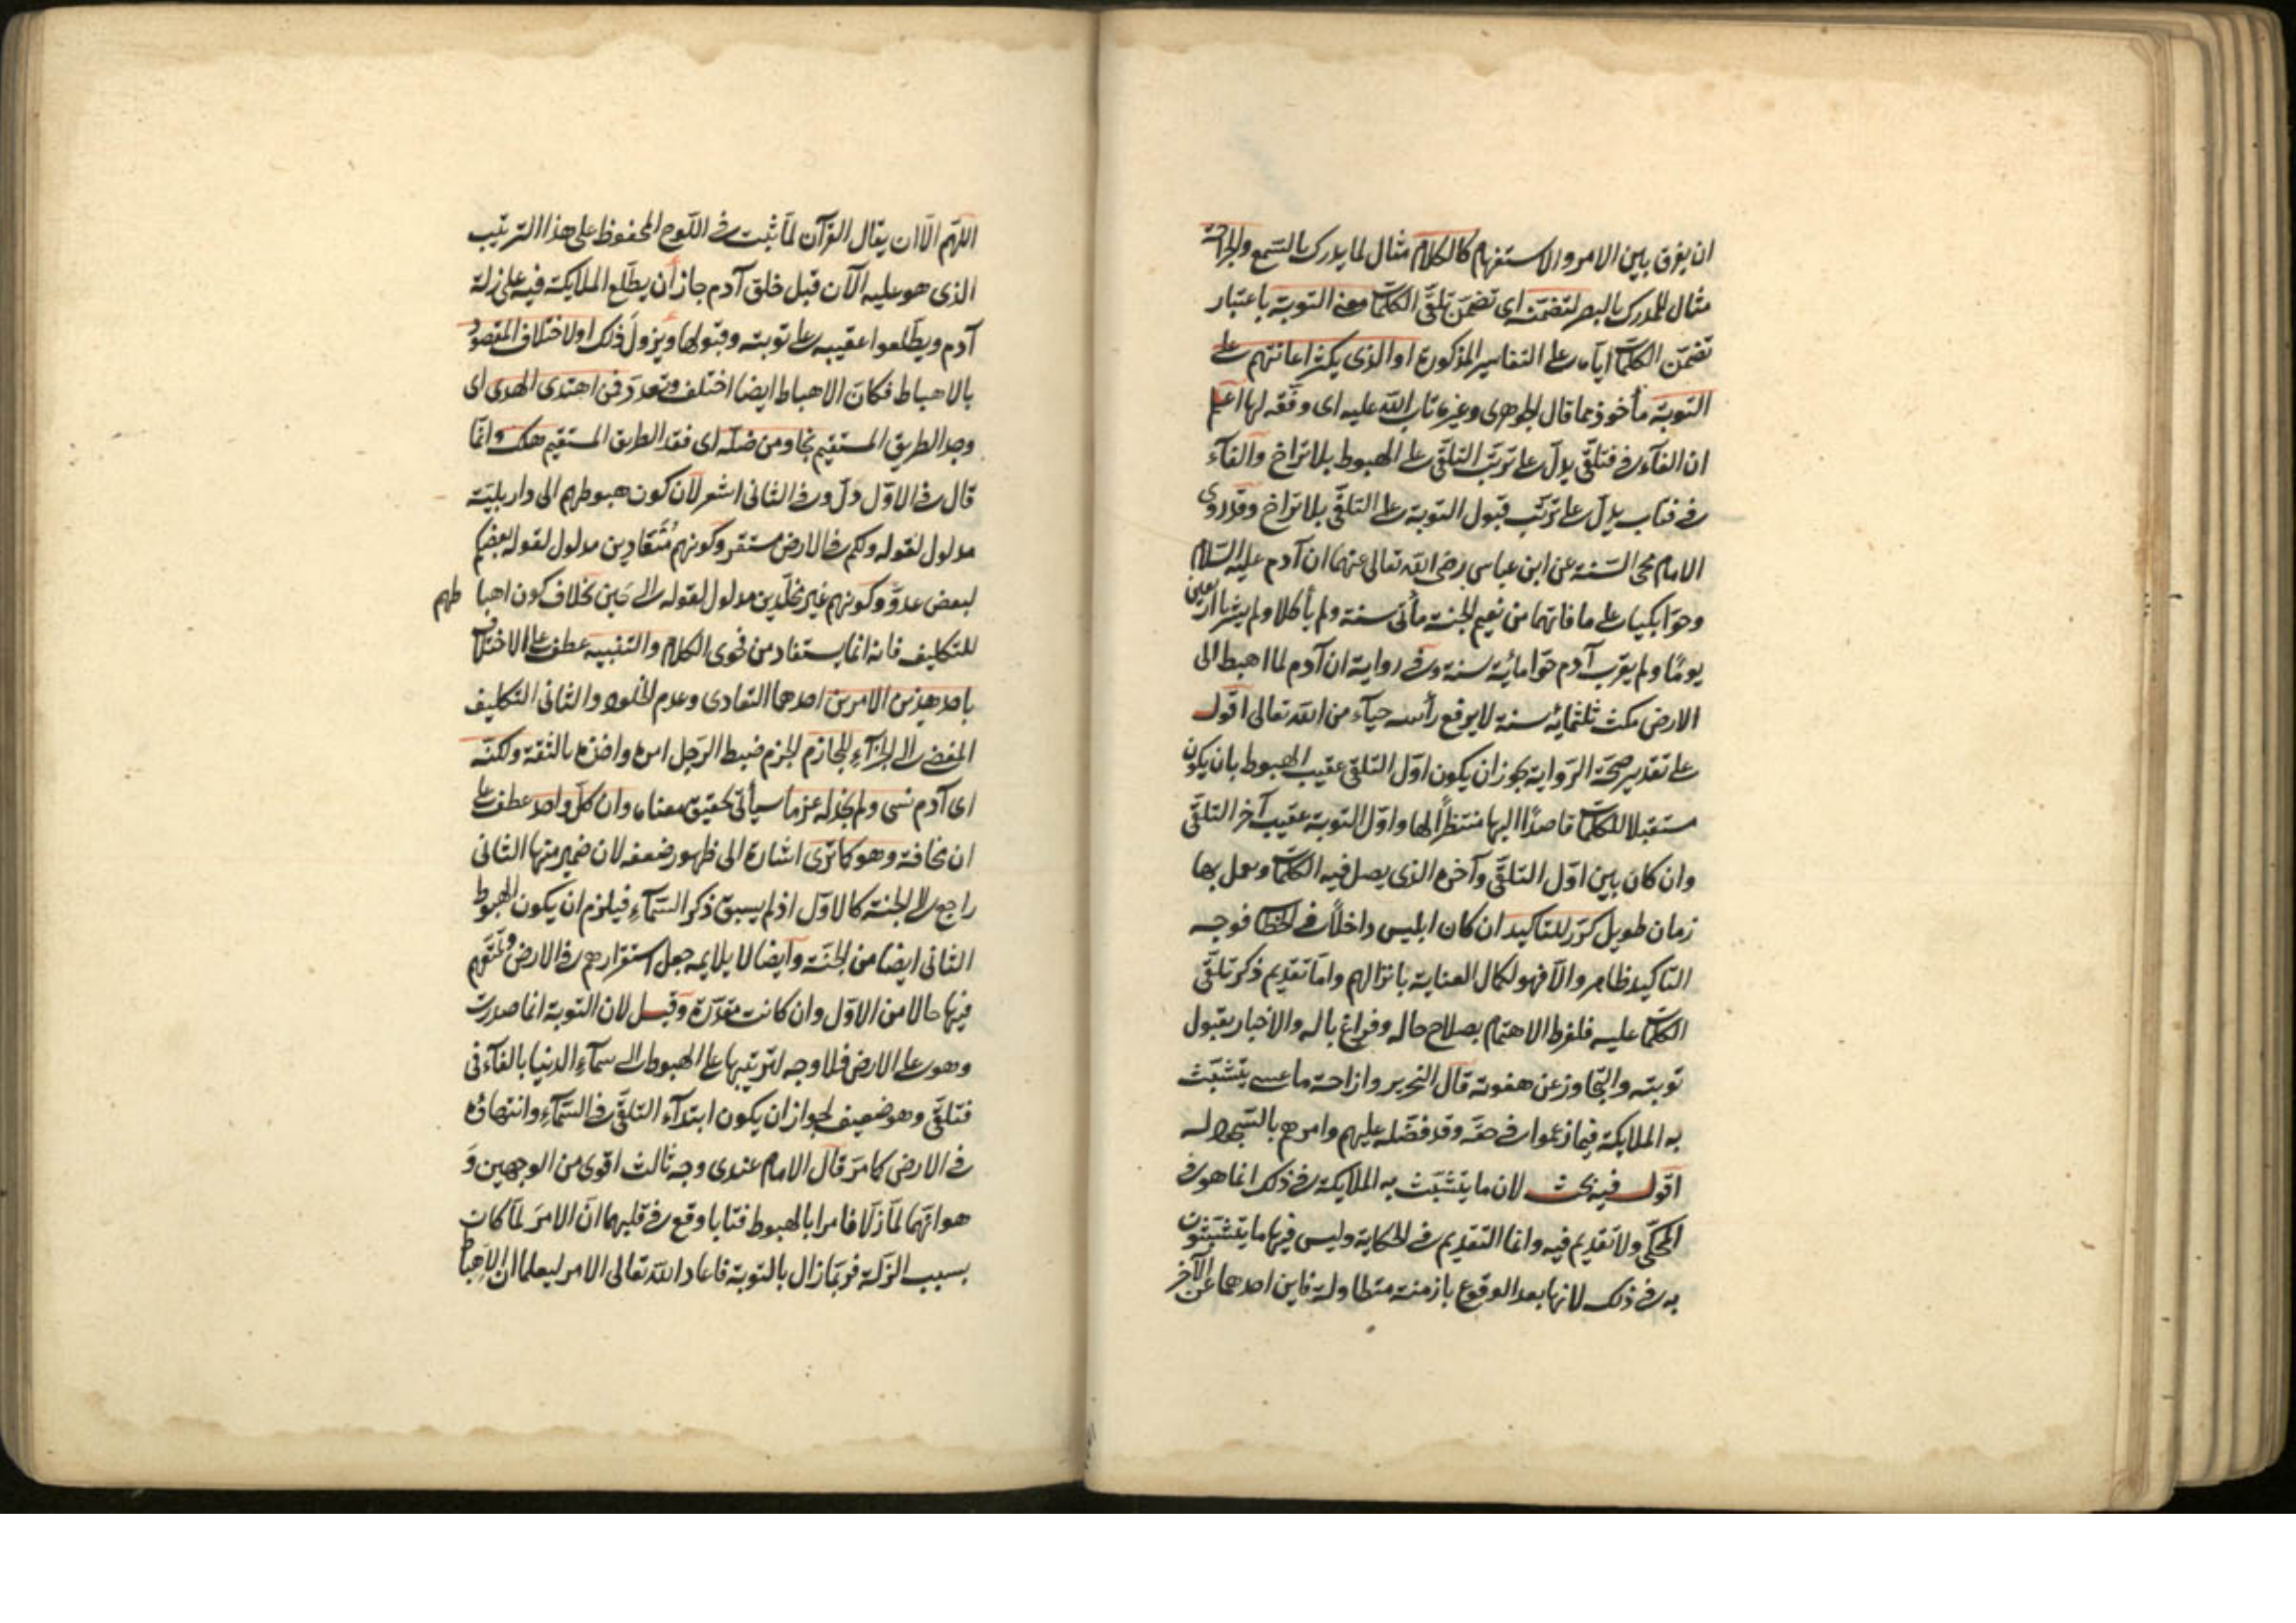 ان يفرق بين الامر والاستفهام كالكلام مثال لما يدرك بالسمع والجراحة
مثال للمدرك بالبصر لتضمنه اى تضمن تلقى الكلمات معنى التوبة باعتبار
تضمن الكلمات اياه على التفاسير المذكورة او الذى يكثر اعانتهم على
التوبة مأخوذ مما قال الجوهرى وغيره تاب الله عليه اى وفقه لها اعلم
ان الفآء فى فتلقى يدل على ترتب التلقى على الهبوط بلا تراخ والفآء
فى فتاب يدل على ترتب قبول التوبة على التلقى بلا تراخ وقد روى
الامام محى السنة عن ابن عباس رضى الله تعالى عنهما ان آدم عليه السلام
وحوا بكيا على ما فاتهما من نعيم الجنة مأتى سنة ولم يأكلا ولم يشربا اربعين
يومًا ولم يقرب آدم حوا مائة سنة وفى رواية ان آدم لما اهبط الى
الارض مكث ثلثمائة سنة لا يرفع رأسه حيآء من الله تعالى اقول
على تقدير صحة الرواية يجوز ان يكون اول التلقى عقيب الهبوط بان يكون
مستقبلا للكلمات قاصدًا اليها منتظرًا لها واول التوبة عقيب آخر التلقى
وان كان بين اول التلقى وآخره الذى يصل فيه الكلمات وعمل بها
زمان طويل كرر للتاكيد ان كان ابليس داخلاً فى الخطاب فوجه
التاكيد ظاهر والا فهو لكمال العناية بانزالهم واما تقديم ذكر تلقى
الكلمات عليه فلفرط الاهتمام بصلاح حاله وفراغ باله والاخبار بقبول
توبته والتجاوز عن هفوته قال النحرير وازاحة ما عسى يتشبث
به الملايكة فيما زعموا فى حقه وقد فضله عليهم وامرهم بالسجود له
اقول فيه بحث لان ما يتشبث به الملايكة فى ذلك انما هو فى
المحكى ولا تقديم فيه وانما التقديم فى الحكاية وليس فيها ما يتشبثون
به فى ذلك لانها بعد الوقوع بازمنة متطاولة فاين احدهما عن الآخر
اللهم الا ان يقال القرآن لما ثبت فى اللوح المحفوظ على هذا الترتيب
الذى هو عليه الآن قبل خلق آدم جاز أن يطلع الملايكة فيه على زلة
آدم ويطلعوا عقيبه على توبته وقبولها ويزول ذلك او لاختلاف المقصود
بالاهباط فكان الاهباط ايضا اختلف وتعدد فمن اهتدى الهدى اى
وجد الطريق المستقيم نجا ومن ضله اى فقد الطريق المستقيم هلك وانما
قال فى الاول دل وفى الثانى اشعر لان كون هبوطهم الى دار بلية
مدلول لقوله ولكم فى الارض مستقر وكونهم متعادين مدلول لقوله بعضكم
لبعض عدو وكونهم غير مخلدين مدلول لقوله الى حين بخلاف كون اهبا طهم
للتكليف فانه انما يستفاد من فحوى الكلام والتنبيه عطف على الاختلاف
باحد هذين الامرين احدهما التعادى وعدم الخلود والثانى التكليف
المفضى الى الجزآء للجازم الجزم ضبط الرجل امره واخذه بالثقة ولكنه
اى آدم نسى ولم نجد له عزما سيأتى تحقيق معناه وان كل واحد عطف على
ان مخافة وهو كما ترى اشارة الى ظهور ضعفه لان ضمير منها الثانى
راجع الى الجنة كالاول اذ لم يسبق ذكر السمآء فيلزم ان يكون الهبوط
الثانى ايضا من الجنة وايضا لا يلايمه جعل استقرارهم فى الارض وتمتعهم
فيها حالا من الاول وان كانت مقدرة وقيل لان التوبة انما صدرت
وهو على الارض فلا وجه لترتبها على الهبوط الى سمآء الدنيا بالفآء فى
فتلقى وهو ضعيف لجواز ان يكون ابتدآء التلقى فى السمآء وانتهاؤه
فى الارض كما مر قال الامام عندى وجه ثالث اقوى من الوجهين و
هو انهما لما زلا فامرا بالهبوط فتابا وقع فى قلبهما ان الامر لما كان
بسبب الزلة فربما زال بالتوبة فاعاد الله تعالى الامر ليعلما ان الاهباط